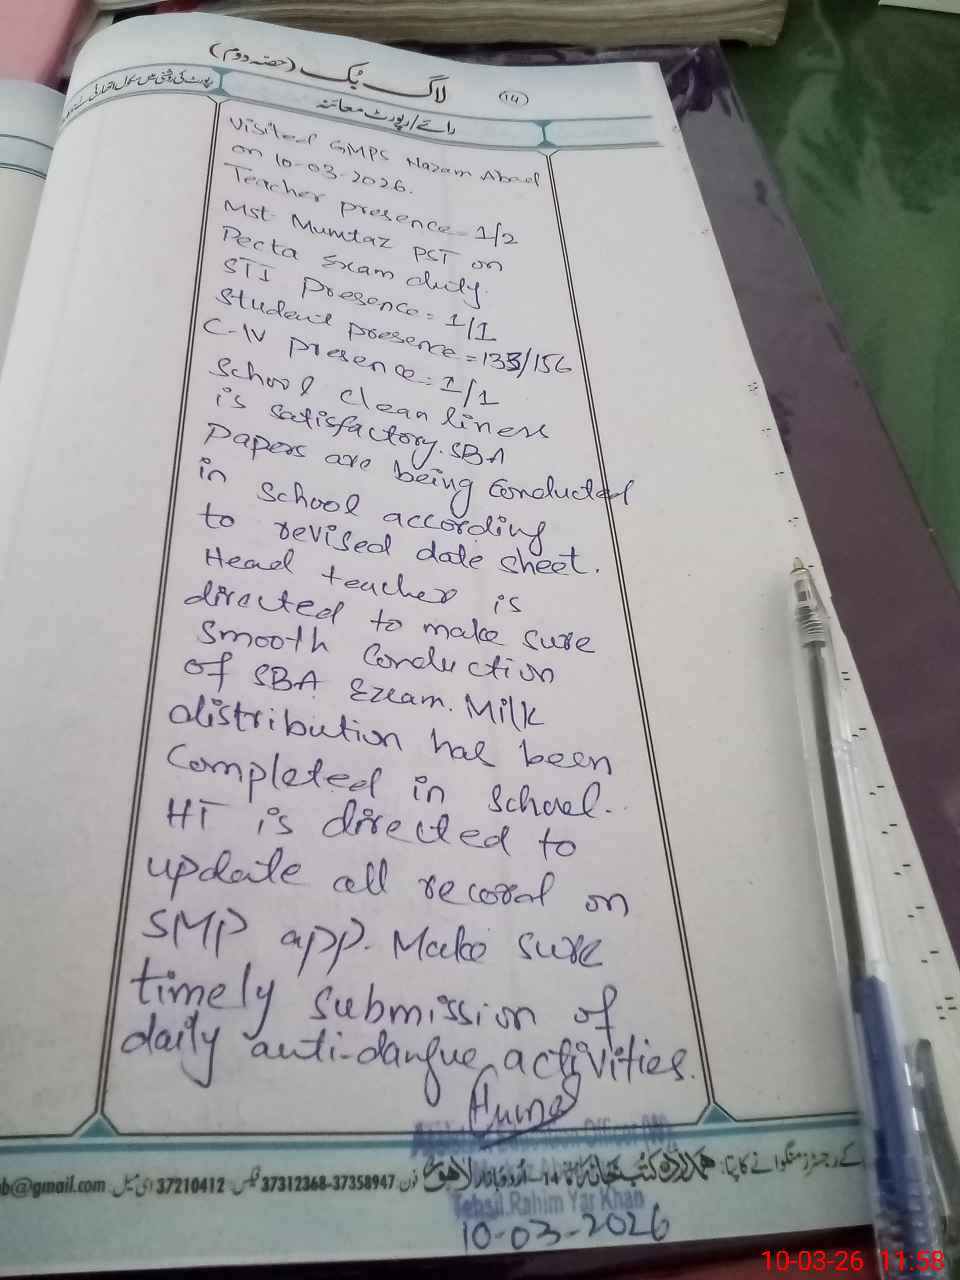 لاگ بُک (حصّہ دوم)
(14)
رائے/رپورٹ معائنہ
Visited GMPS Nazam Abad
on 10-03-2026.
Teacher presence = 1/2
Mst. Mumtaz PST on
Pecta Exam duty.
STI Presence = 1/1
Student presence = 133/156
C-IV presence = 1/1
School cleanliness
is satisfactory. SBA
Papers are being Conducted
in School according
to revised date sheet.
Head teacher is
directed to make sure
smooth Conduction
of SBA Exam. Milk
distribution has been
Completed in School.
HT is directed to
update all record on
SMP app. Make sure
timely submission of
daily anti-dangue activities.
Education Officer
کے رجسٹر منگوانے کا پتا: اُردو بازار لاہور فون 37312368-37358947 فیکس 37210412 ای میل b@gmail.com
Tehsil Rahim Yar Khan
10-03-2026
10-03-26 11:58